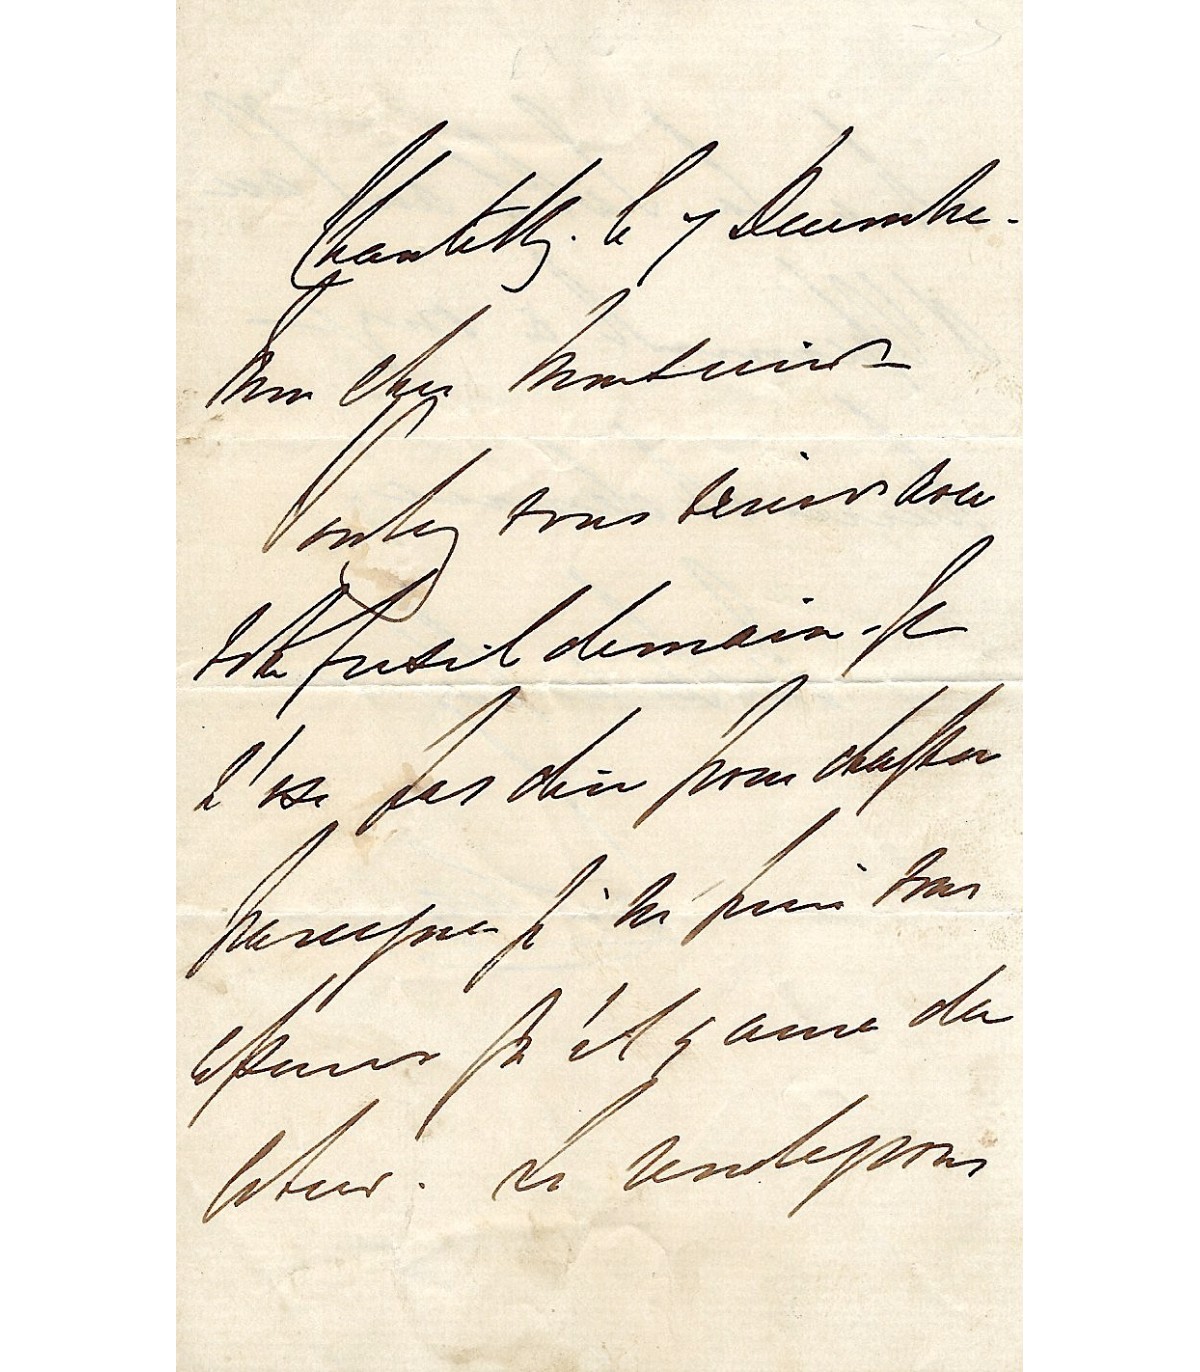 Chantilly. le 7 Decembre.
Mon cher
Voulez vous venir avec
votre fusil demain. Je
n'ose pas dire pour chasser
parceque je n'ai pas vous
qu'il y aura du
Le rendezvous